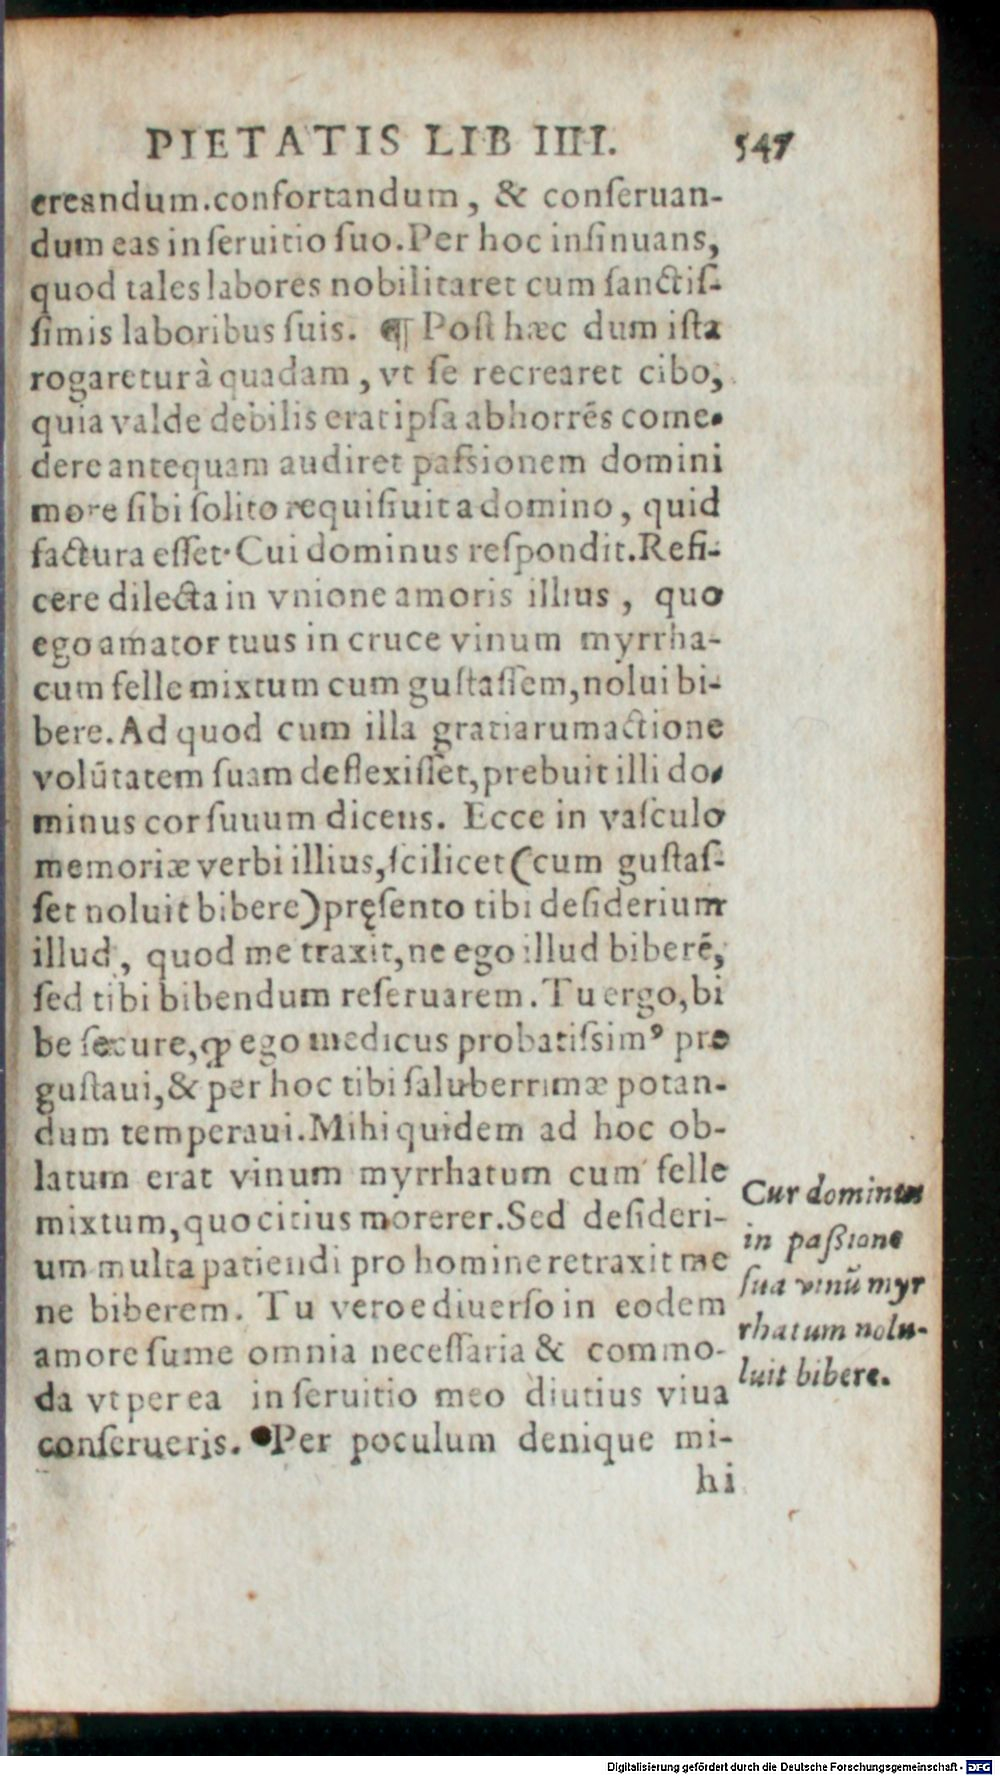 PIETATIS LIB IIII. 547
creandum.confortandum, & conſeruan-
dum eas in ſeruitio ſuo.Per hoc inſinuans,
quod tales labores nobilitaret cum ſanctiſ-
ſimis laboribus ſuis. ¶ Poſt hæc dum iſta
rogaretur à quadam, vt ſe recrearet cibo,
quia valde debilis erat ipſa abhorrēs come-
dere antequam audiret paſsionem domini
more ſibi ſolito requiſiuit a domino, quid
factura eſſet. Cui dominus reſpondit.Refi-
cere dilecta in vnione amoris illius, quo
ego amator tuus in cruce vinum myrrha-
cum felle mixtum cum guſtaſſem,nolui bi-
bere.Ad quod cum illa gratiarumactione
volūtatem ſuam deflexiſſet,prebuit illi do-
minus cor ſuuum dicens. Ecce in vaſculo
memoriæ verbi illius,ſcilicet (cum guſtaſ-
ſet noluit bibere) pręſento tibi deſiderium
illud, quod me traxit,ne ego illud biberē,
ſed tibi bibendum reſeruarem.Tu ergo,bi
be ſecure,ꝙ ego medicus probatiſsimꝰ pre
guſtaui,& per hoc tibi ſaluberrimæ potan-
dum temperaui.Mihi quidem ad hoc ob-
latum erat vinum myrrhatum cum felle
mixtum,quo citius morerer.Sed deſideri-
um multa patiendi pro homine retraxit me
ne biberem. Tu vero ediuerſo in eodem
amore ſume omnia neceſſaria & commo-
da vt per ea in ſeruitio meo diutius viua
conſerueris. Per poculum denique mi-
hi
Cur dominus
in paßione
ſua vinū myr
rhatum nolu-
luit bibere.
Digitalisierung gefördert durch die Deutsche Forschungsgemeinschaft - DFG